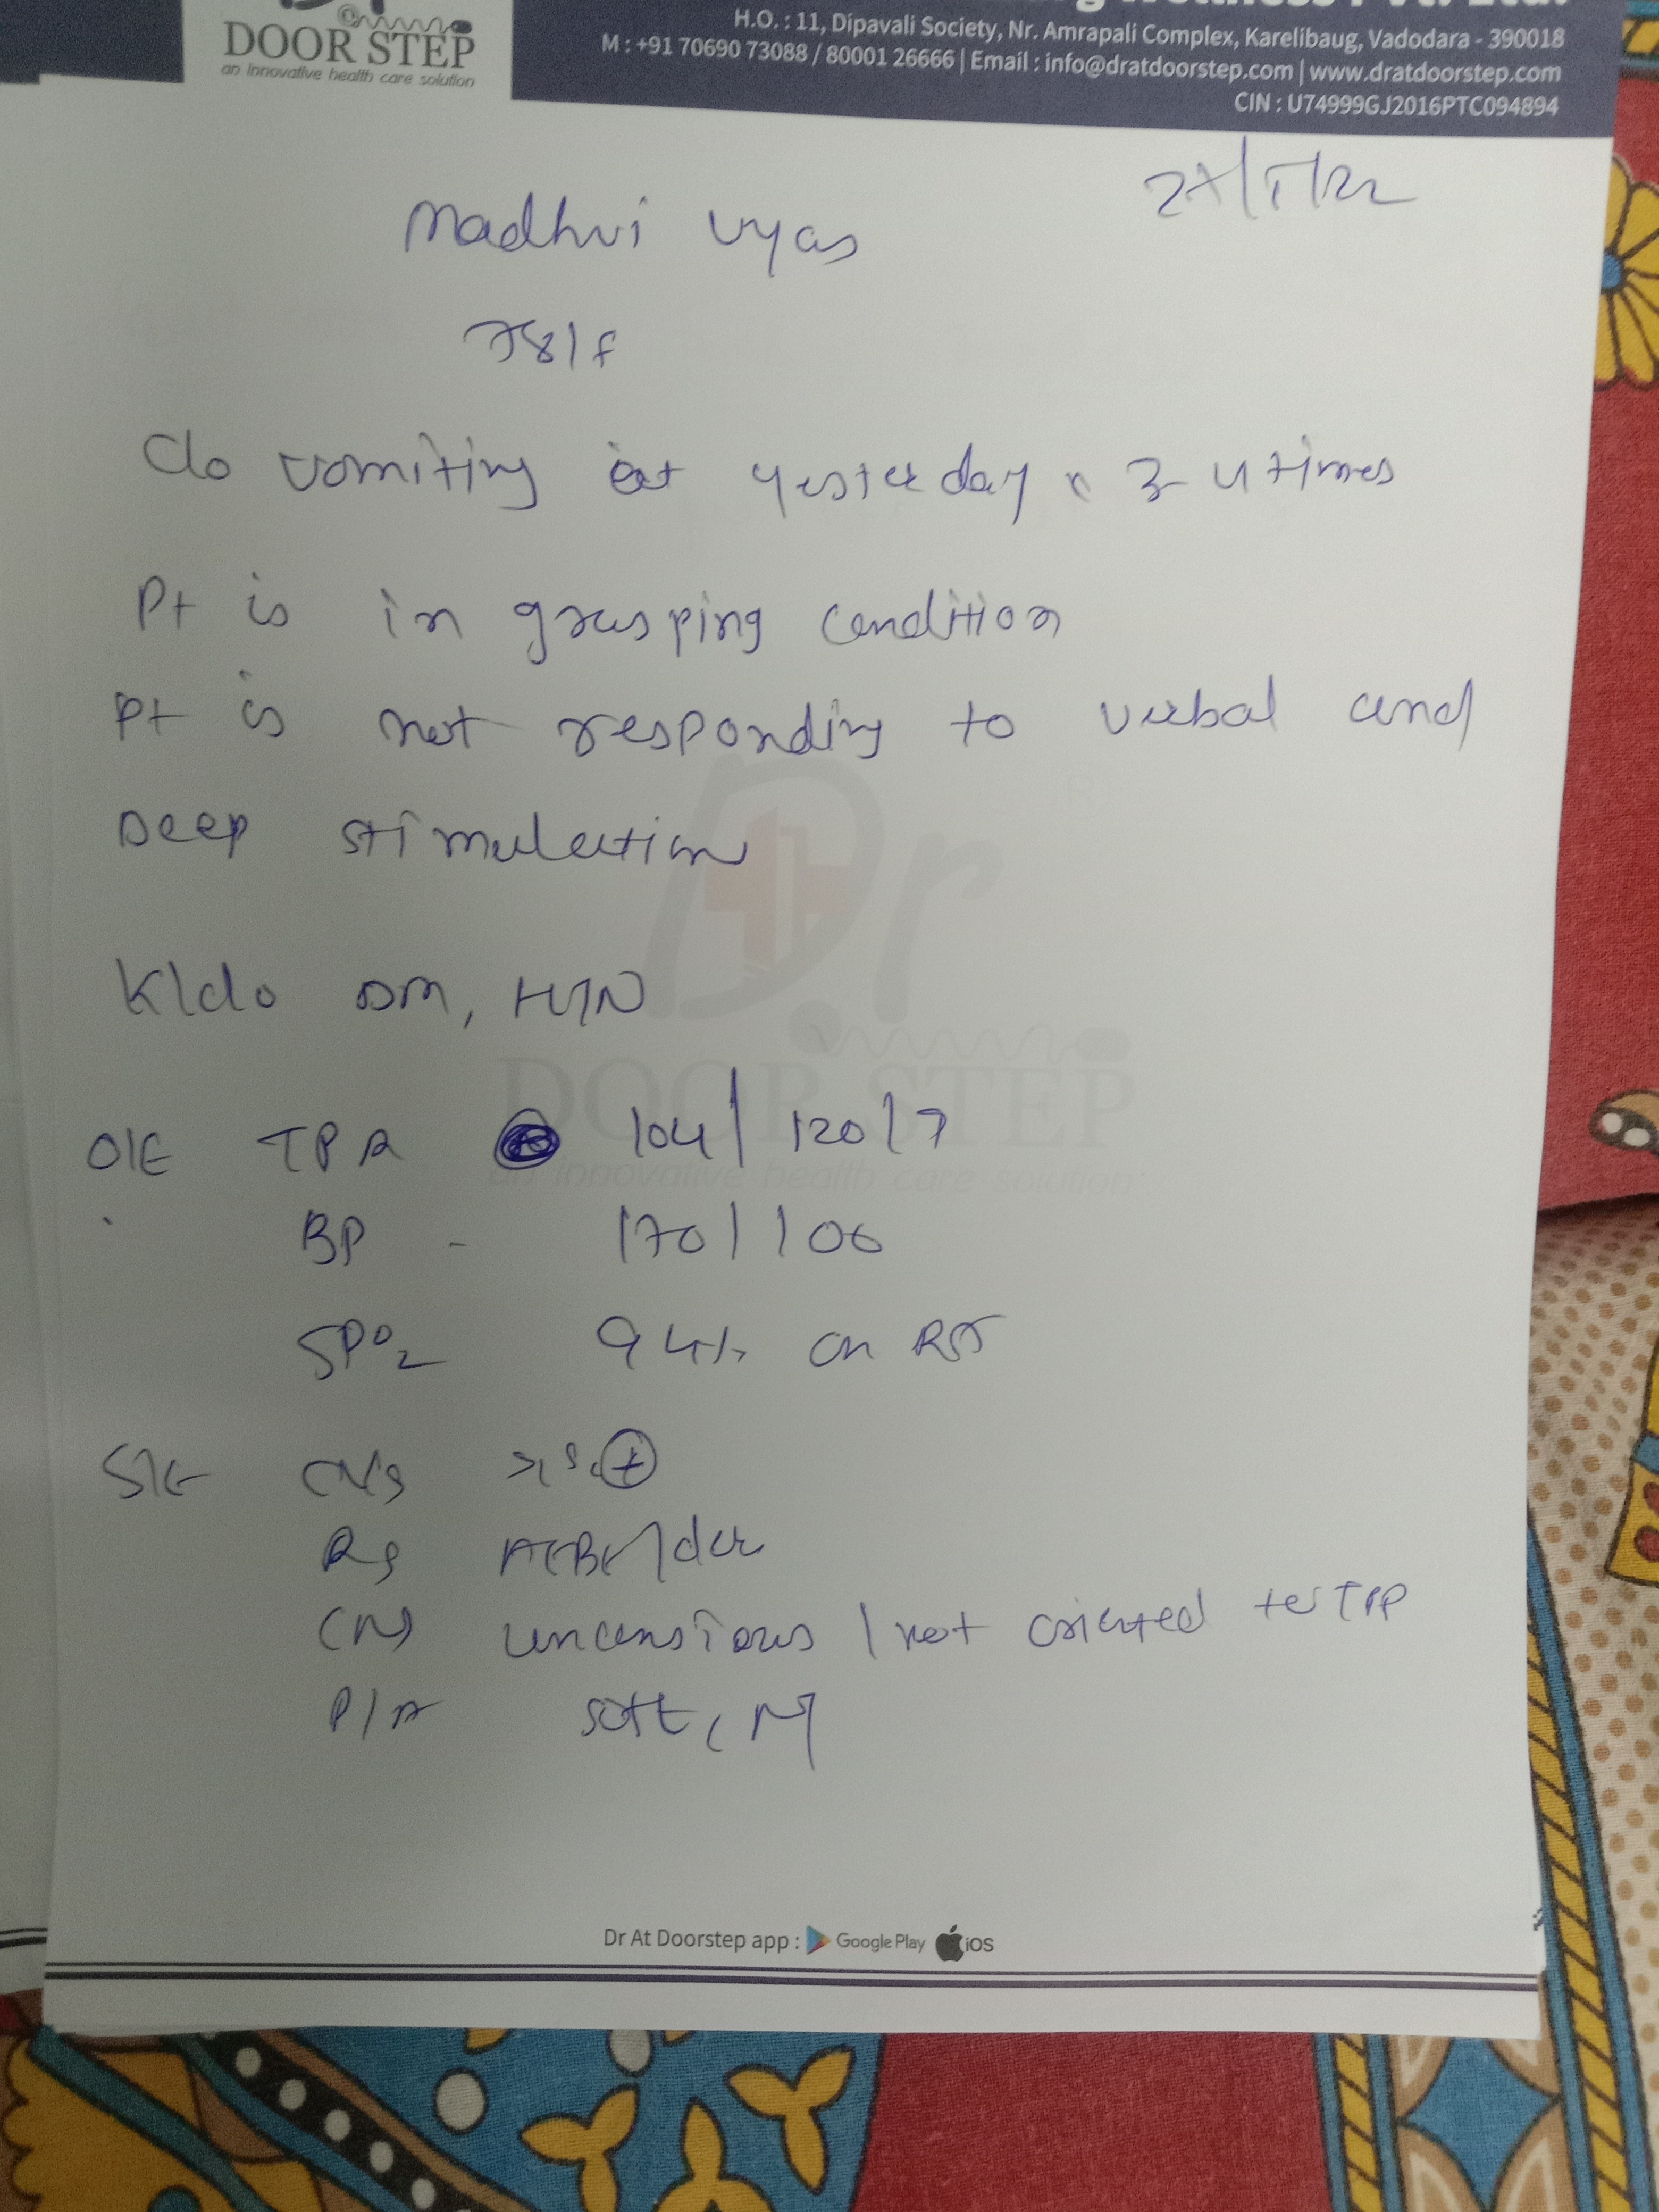 DOOR STEP
an innovative health care solution
H.O. : 11, Dipavali Society, Nr. Amrapali Complex, Karelibaug, Vadodara - 390018
M : +91 70690 73088 / 80001 26666 | Email : info@dratdoorstep.com | www.dratdoorstep.com
CIN : U74999GJ2016PTC094894
Madhvi Vyas
78/F
C/o vomiting yesterday x 3-4 times
Pt is in grasping condition
Pt is not responding to verbal and
Deep stimulation
K/c/o DM, HTN
O/E TPR 104/120/?
BP - 170/100
SPO2 94% on RA
S/E CVS S1S2 +
RS AEBE/clear
CNS unconsious / not oriented to TPP
P/A soft, NT
Dr
DOOR STEP
an innovative health care solution
Dr At Doorstep app : Google Play iOS